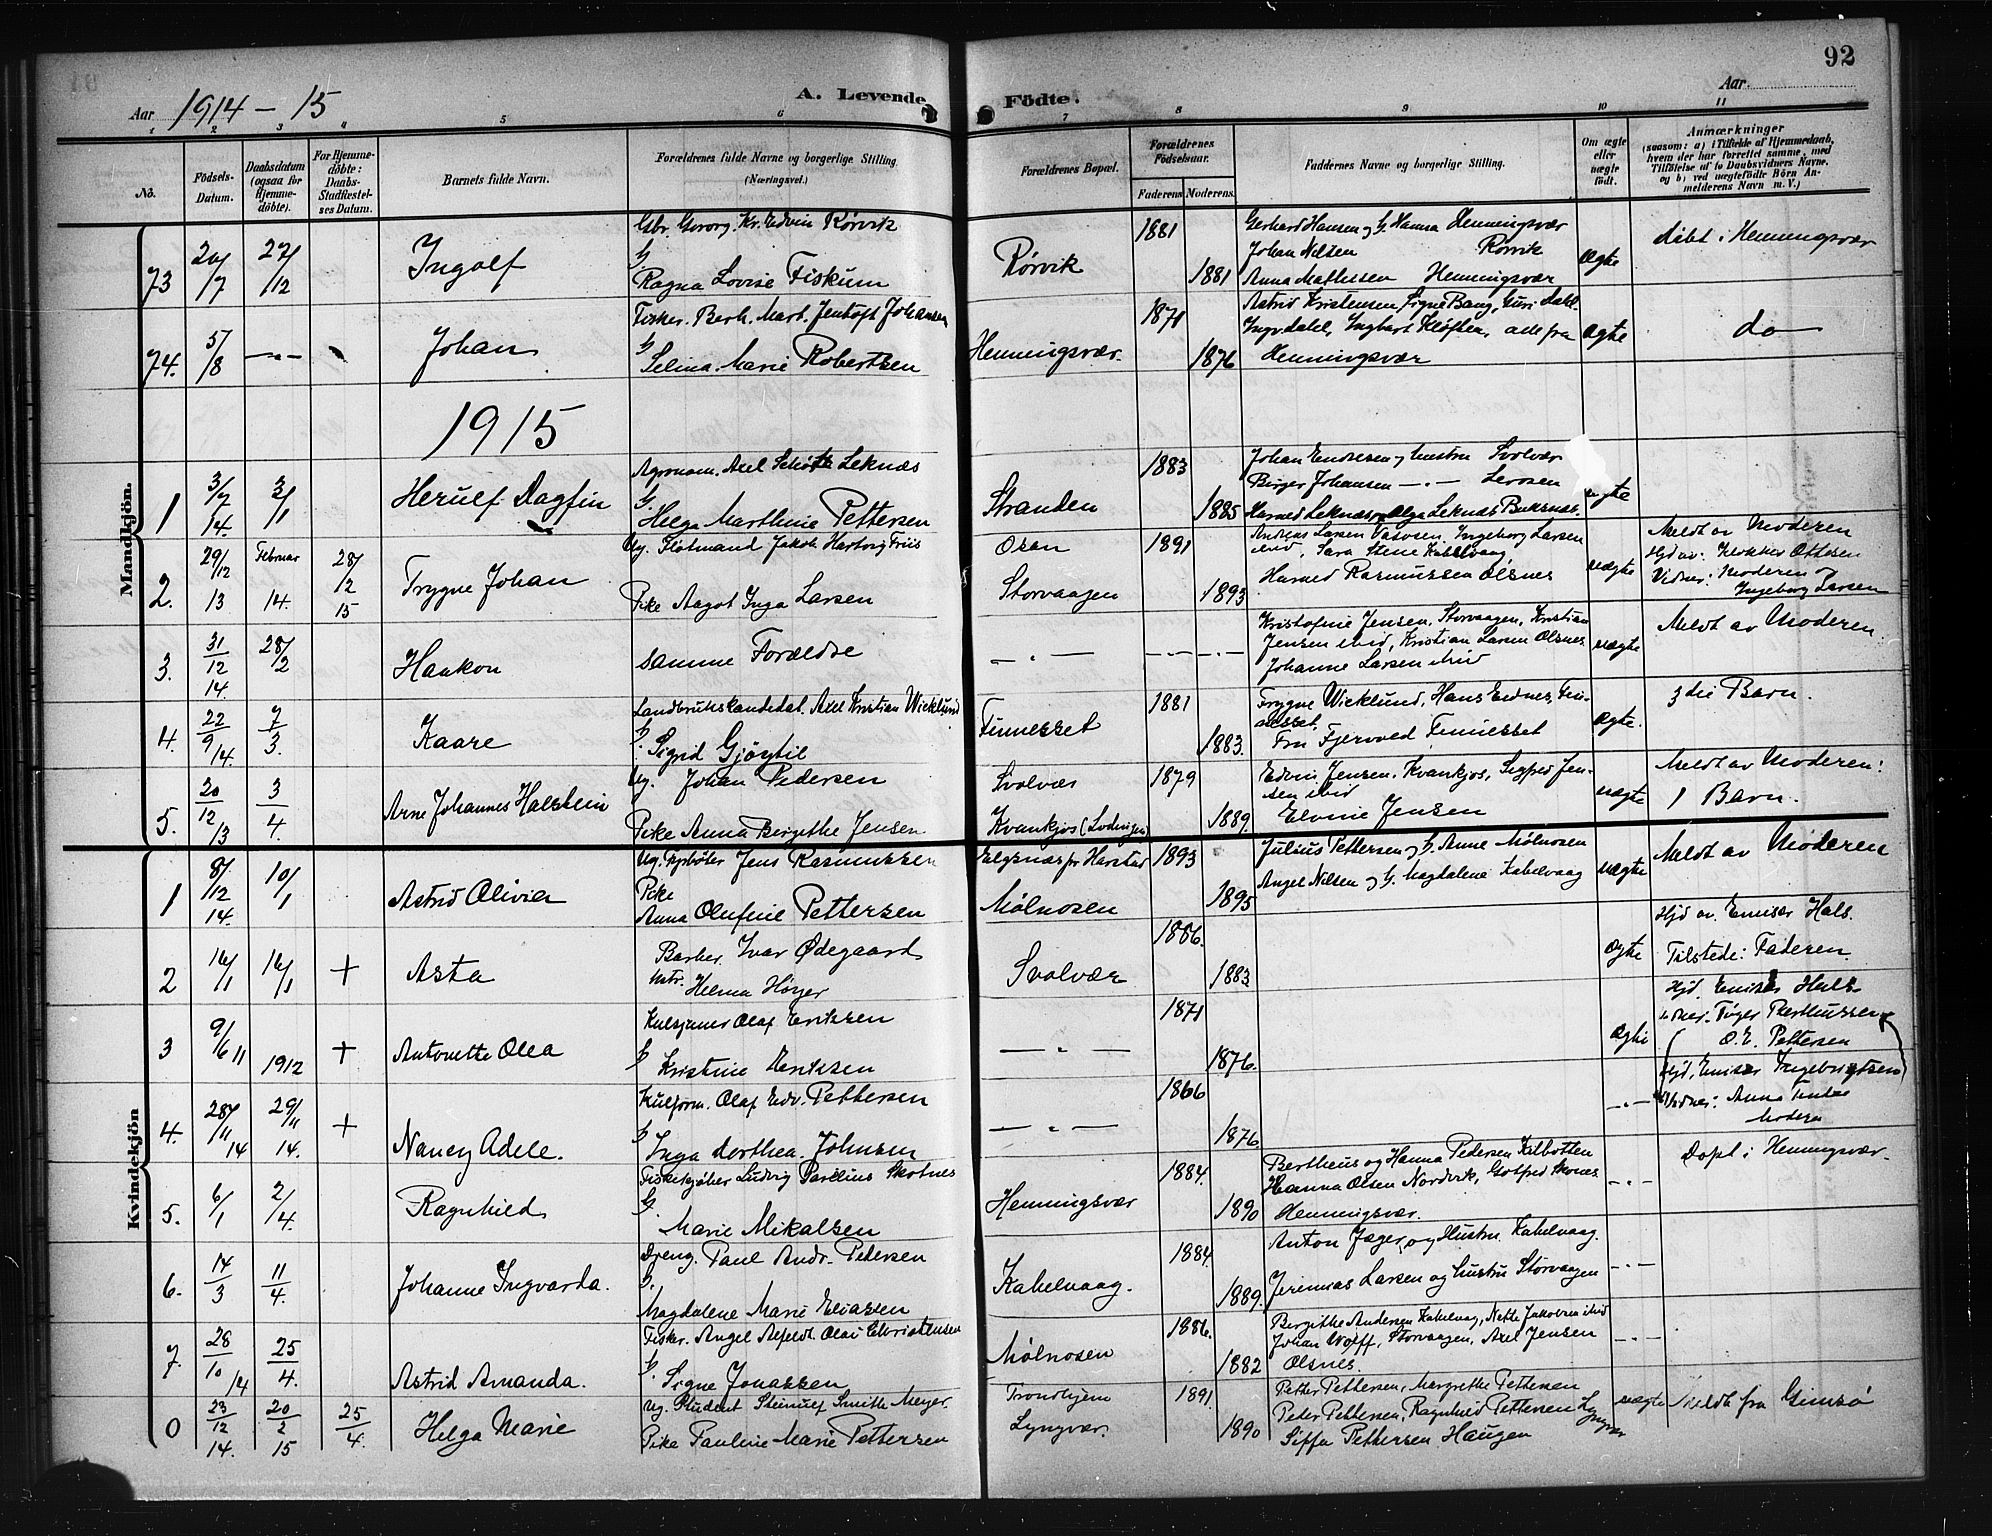 92
Aar 1914 – 15
A. Levende Födte.
Aar
1 2 3 4 5 6 7 8 9 10 11
No.
Födsels-Datum.
Daabsdatum (ogsaa for Hjemmedöbte).
For Hjemmedöbte: Daabs-Stadfæstelses Datum.
Barnets fulde Navn.
Forældrenes fulde Navne og borgerlige Stilling. (Næringsvei.)
Forældrenes Bopæl.
Forældrenes Födselsaar.
Faderens Moderens.
Faddernes Navne og borgerlige Stilling.
Om ægte eller uægte födt.
Anmærkninger
(saasom: a) i Tilfælde af Hjemmedaab, hvem der har forrettet samme, med Tilföielse af to Daabsvidners Navne, og b) ved uægtefödte Börn Anmelderens Navn m. V.)
Mandkjön.
73 20/7 27/12 Ingolf
Gbr. Georg. Kr. Edvin Rørvik
G
Ragna Lovise Fiskum
Rørvik 1881 1881
Gerhard Hansen og G. Hanna Henningsvær
Johan Nilsen Rørvik
Anna Mathissen Henningsvær
Ægte
døbt i Henningsvær
74. 5/8 –„– Johan
Fisker. Berh. Mart. Jentoft Johansen
G
Selina. Marie Robertsen
Henningsvær. 1871 1876
Astrid Kristensen, Signe Bang, Guri Dahl
Ingv. dahl, Ingbart Kløften, alle fra
Henningsvær
Ægte
do
1915
1 3/7 14. 3/1 Herulf Dagfin
Agronom. Axel Schøtt Leknæs
G.
Helga Marthinie Pettersen
Stranden 1883 1885
Johan Endresen og hustru Svolvær
Birger Johansen –„– Lerosen
Harned Leknæs og Olga Leknæs Buksnæs.
ægte
2. 29/12 13 Februar 14. 28/2 15 Trygve Johan
Ug. Slotmand Jakob Hartvig Friis
Pike Aagot Inga Larsen
Osan
Storvaagen 1891 1893
Andreas Larsen Vatvoen, Ingeborg Larsen
ibid, Sara Stene Kabelvaag
Harned Rasmussen Ølsnes
uægte
Meldt av Moderen
Hjd av: Klokker Ottesen
Vidner: Moderen og
Ingeborg Larsen
3. 31/12 14. 28/2 Haakon
samme Forældre
– „ – –„– –„–
Kristofine Jensen, Storvaagen, Kristian
Jensen ibid, Kristian Larsen Ølsnes
Johanne Larsen ibid
uægte
Meldt av Moderen.
4. 22/9 14. 7/3. Kaare
Landbrukskandedat. Axel Kristian Wicklund
G.
Sigrid Gjörtil
Finnesset 1881 1883.
Trygve Wicklund, Hans Eidnes, Fin-
nesset,
Fru Fjervoed Finnesset
ægte.
3die Barn.
5. 20/12 13 3/4. Arne Johannes Halstein
Ug. Johan Pedersen
Pike Anna Bergithe Jensen
Svolvær
Kvankjos (Lodingen) 1879 1889.
Edvin Jensen, Kvankjos, Sigfred Jen-
sen ibid
Elvine Jensen
uægte
Meldt av Moderen:
1 Barn.
Kvindekjön
1 8/12 14. 10/1 Astrid Olivia
Ug. Fyrbøter Jens Rasmussen
Pike
Anna Olufine Pettersen
Elgsnæs pr Harstad
Mølnosen 1893 1895
Julius Pettersen og G. Anne Mølnosen
Angel Nilsen og G. Magdalene Kabelvaag
uægte
Meldt av Moderen
2 16/1 16/1 + Asta
Barber. Ivar Ødegaard
Hstr. Helma Høyer
Svolvær 1886. 1883
ægte
Hjd av. Emisær Hals.
Tilstede: Faderen.
3 9/6 11 1912 + Antonette Olea
Kulsjauer Olaf Eriksen
G
Kristine Eriksen
– „ – 1871 1876.
ægte
Hjd. Emisær Hals.
Vidner. Tøger Berthussen
O. E. Pettersen
4. 28/11 14 29/11 14. + Nancy Adele.
Kulform. Olaf Edv. Pettersen
G
Inga Dorthea. Johnsen
– „ – 1866 1876
–„–
Hjd. Emisær Ingebrigtsen
Vidner: Anna
Modern
5. 6/1 2/4. Ragnhild
Fiskekjøber Ludvig Parelius Skotnes
G.
Marie Mikalsen
Henningsvær 1884. 1890
Bertheus og Hanna Pedersen Kalbotten
Hanna Olsen Nordvik, Gotfred Skotnes
Henningsvær.
–„–
Døpt i Henningsvær.
6. 14/3 11/4. Johanne Ingvarda.
Dreng. Paul Andr. Petersen
G.
Magdalene Marie Eliassen
Kabelvaag. 1884. 1889.
Anton Jæger og Hustru Kabelvaag.
Jeremias Larsen og hustru Storvaagen
–„–
7. 28/10 14 25/4. Astrid Amanda.
Fisker. Angel Olai Christensen
G
Signe Jonassen
Mølnosen 1886. 1882
Bergithe Andersen Kabelvag, Nette Jakobsen ibid
Johan Wolff, Storvaagen, Axel Jensen
Ølsnes.
–„–
0 23/12 14. 20/2 15 25/4. Helga Marie
Ug. Student Steinulf Smith Meyer.
Pike Pauline Marie Pettersen
Trondhjem
Lyngvær. 1891. 1890
Petter Pettersen, Margrethe Pettersen
Peder Pettersen, Ragnhild Pettersen Lyngvær
Siffa Pettersen Haugen
uægte
Meldt fra Gimsø